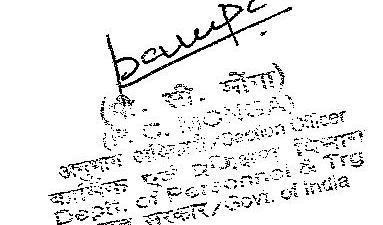 (पी. सी. मोंगा)
(P. C. MONGA)
अनुभाग अधिकारी/Section Officer
कार्मिक एवं प्रशिक्षण विभाग
Deptt. of Personnel & Trg
भारत सरकार/Govt. of India